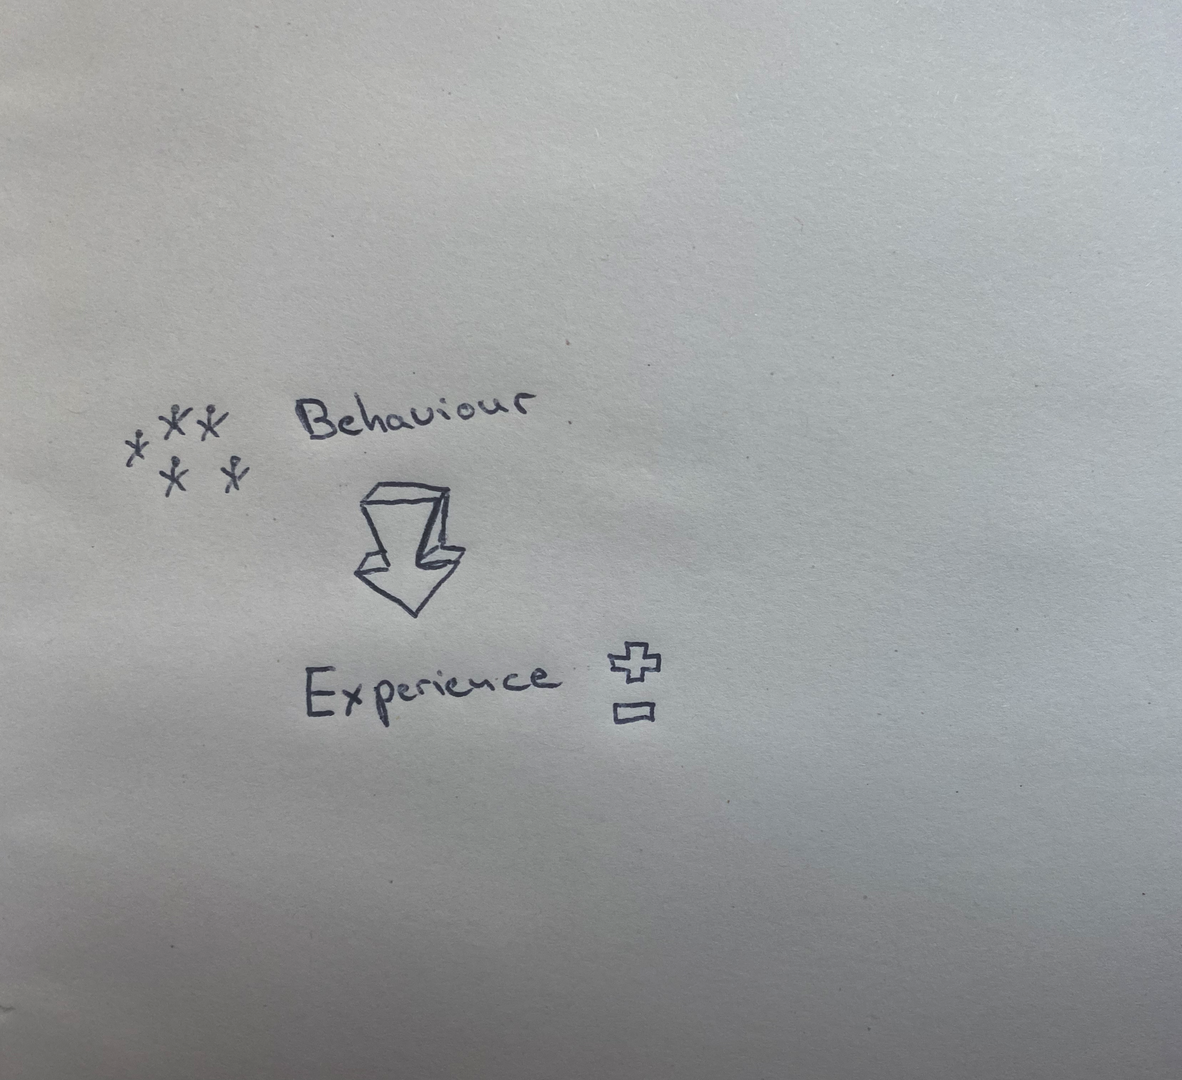 Behaviour
Experience